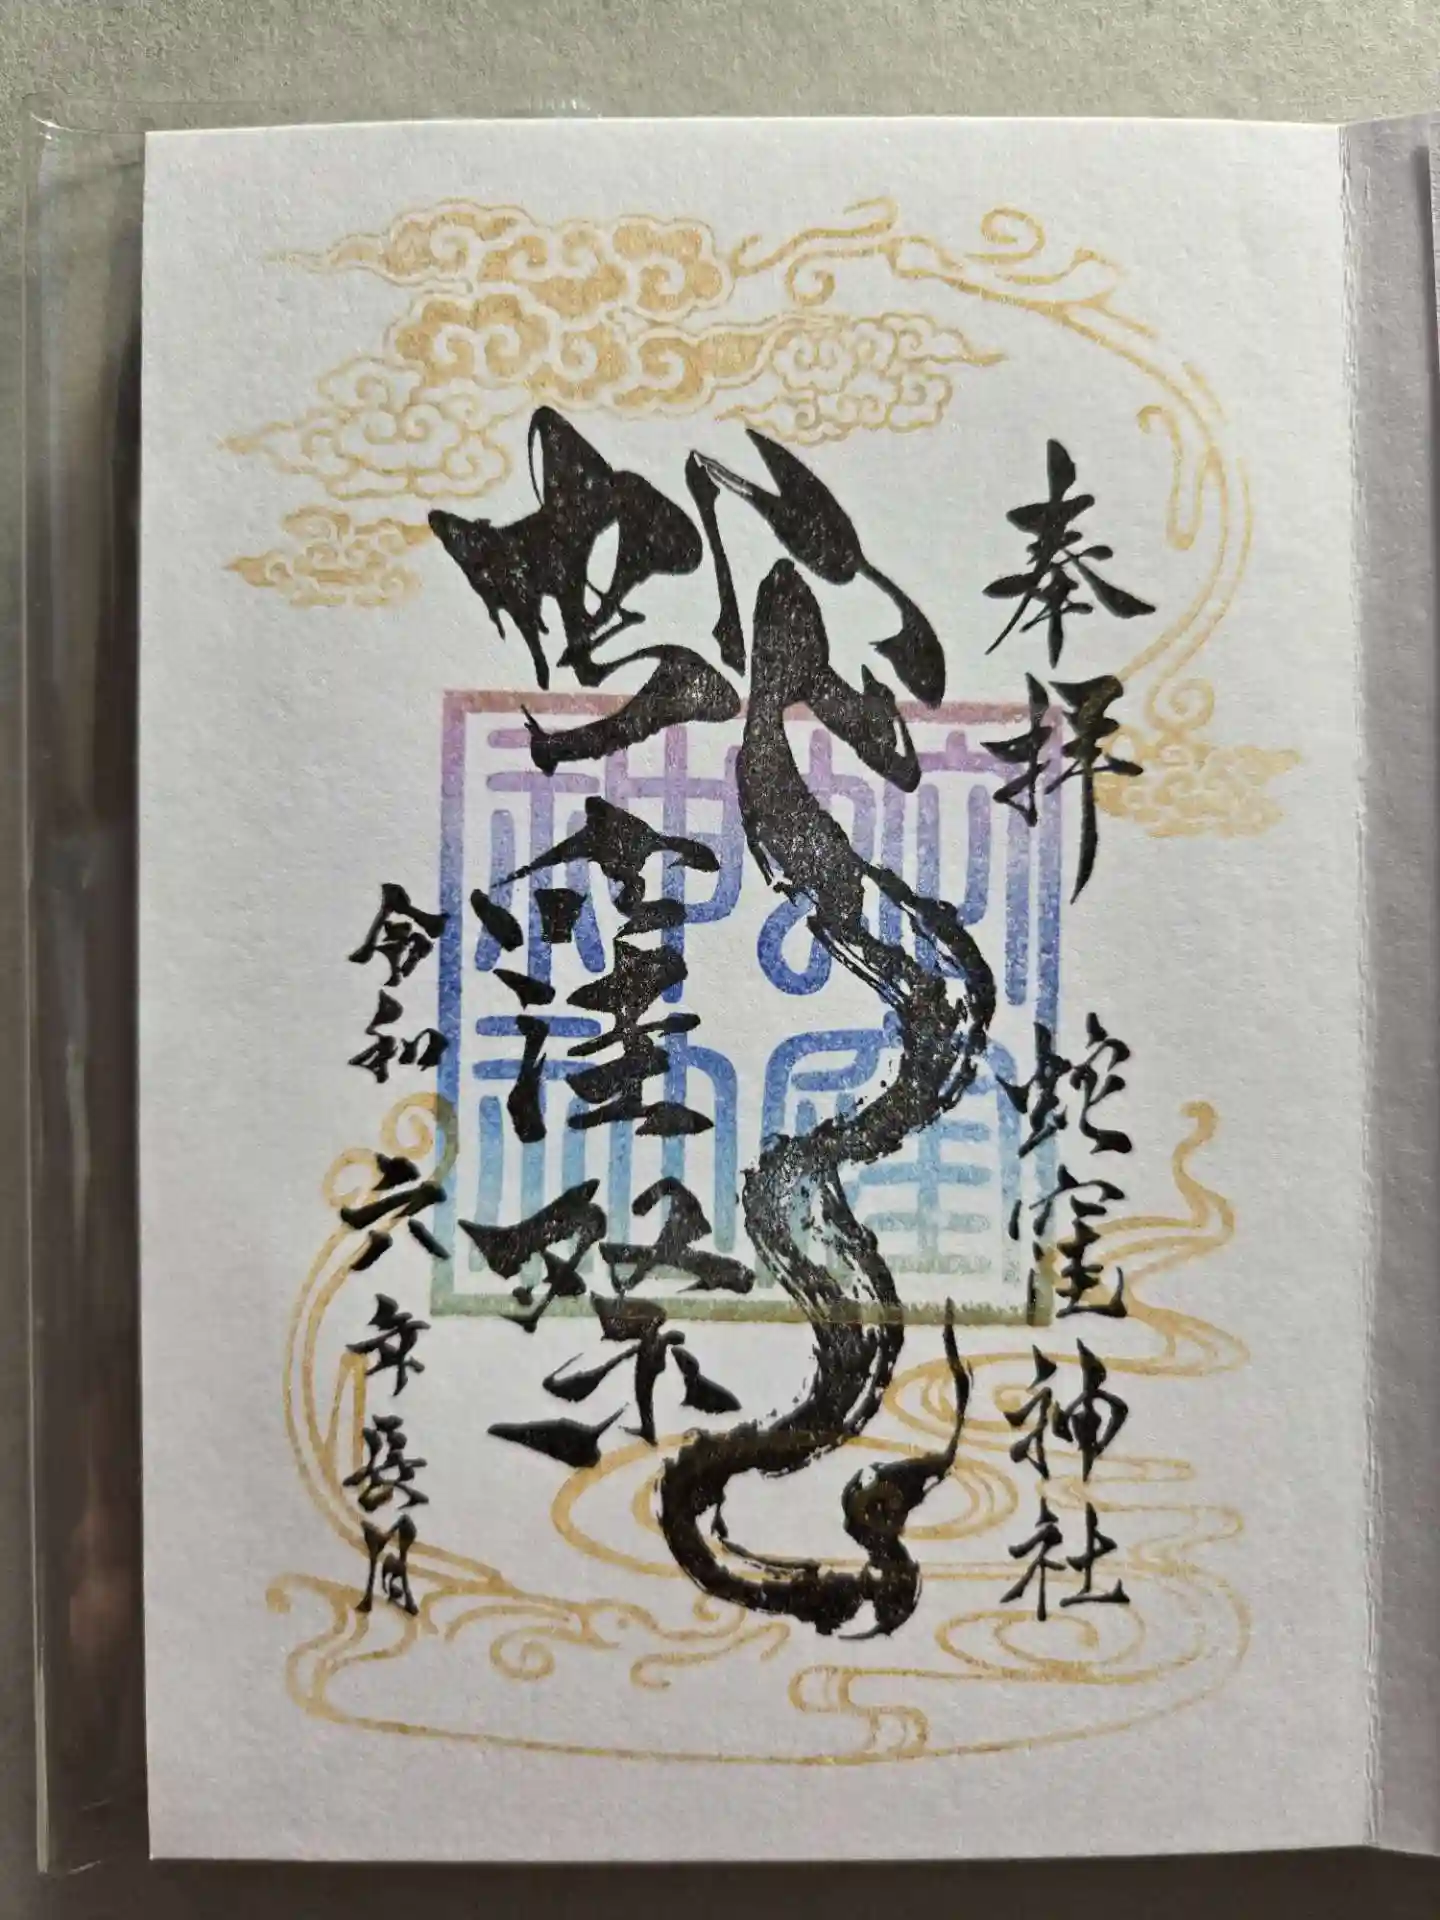 奉拝
蛇窪神社
蛇窪祭
令和六年長月
蛇窪神社